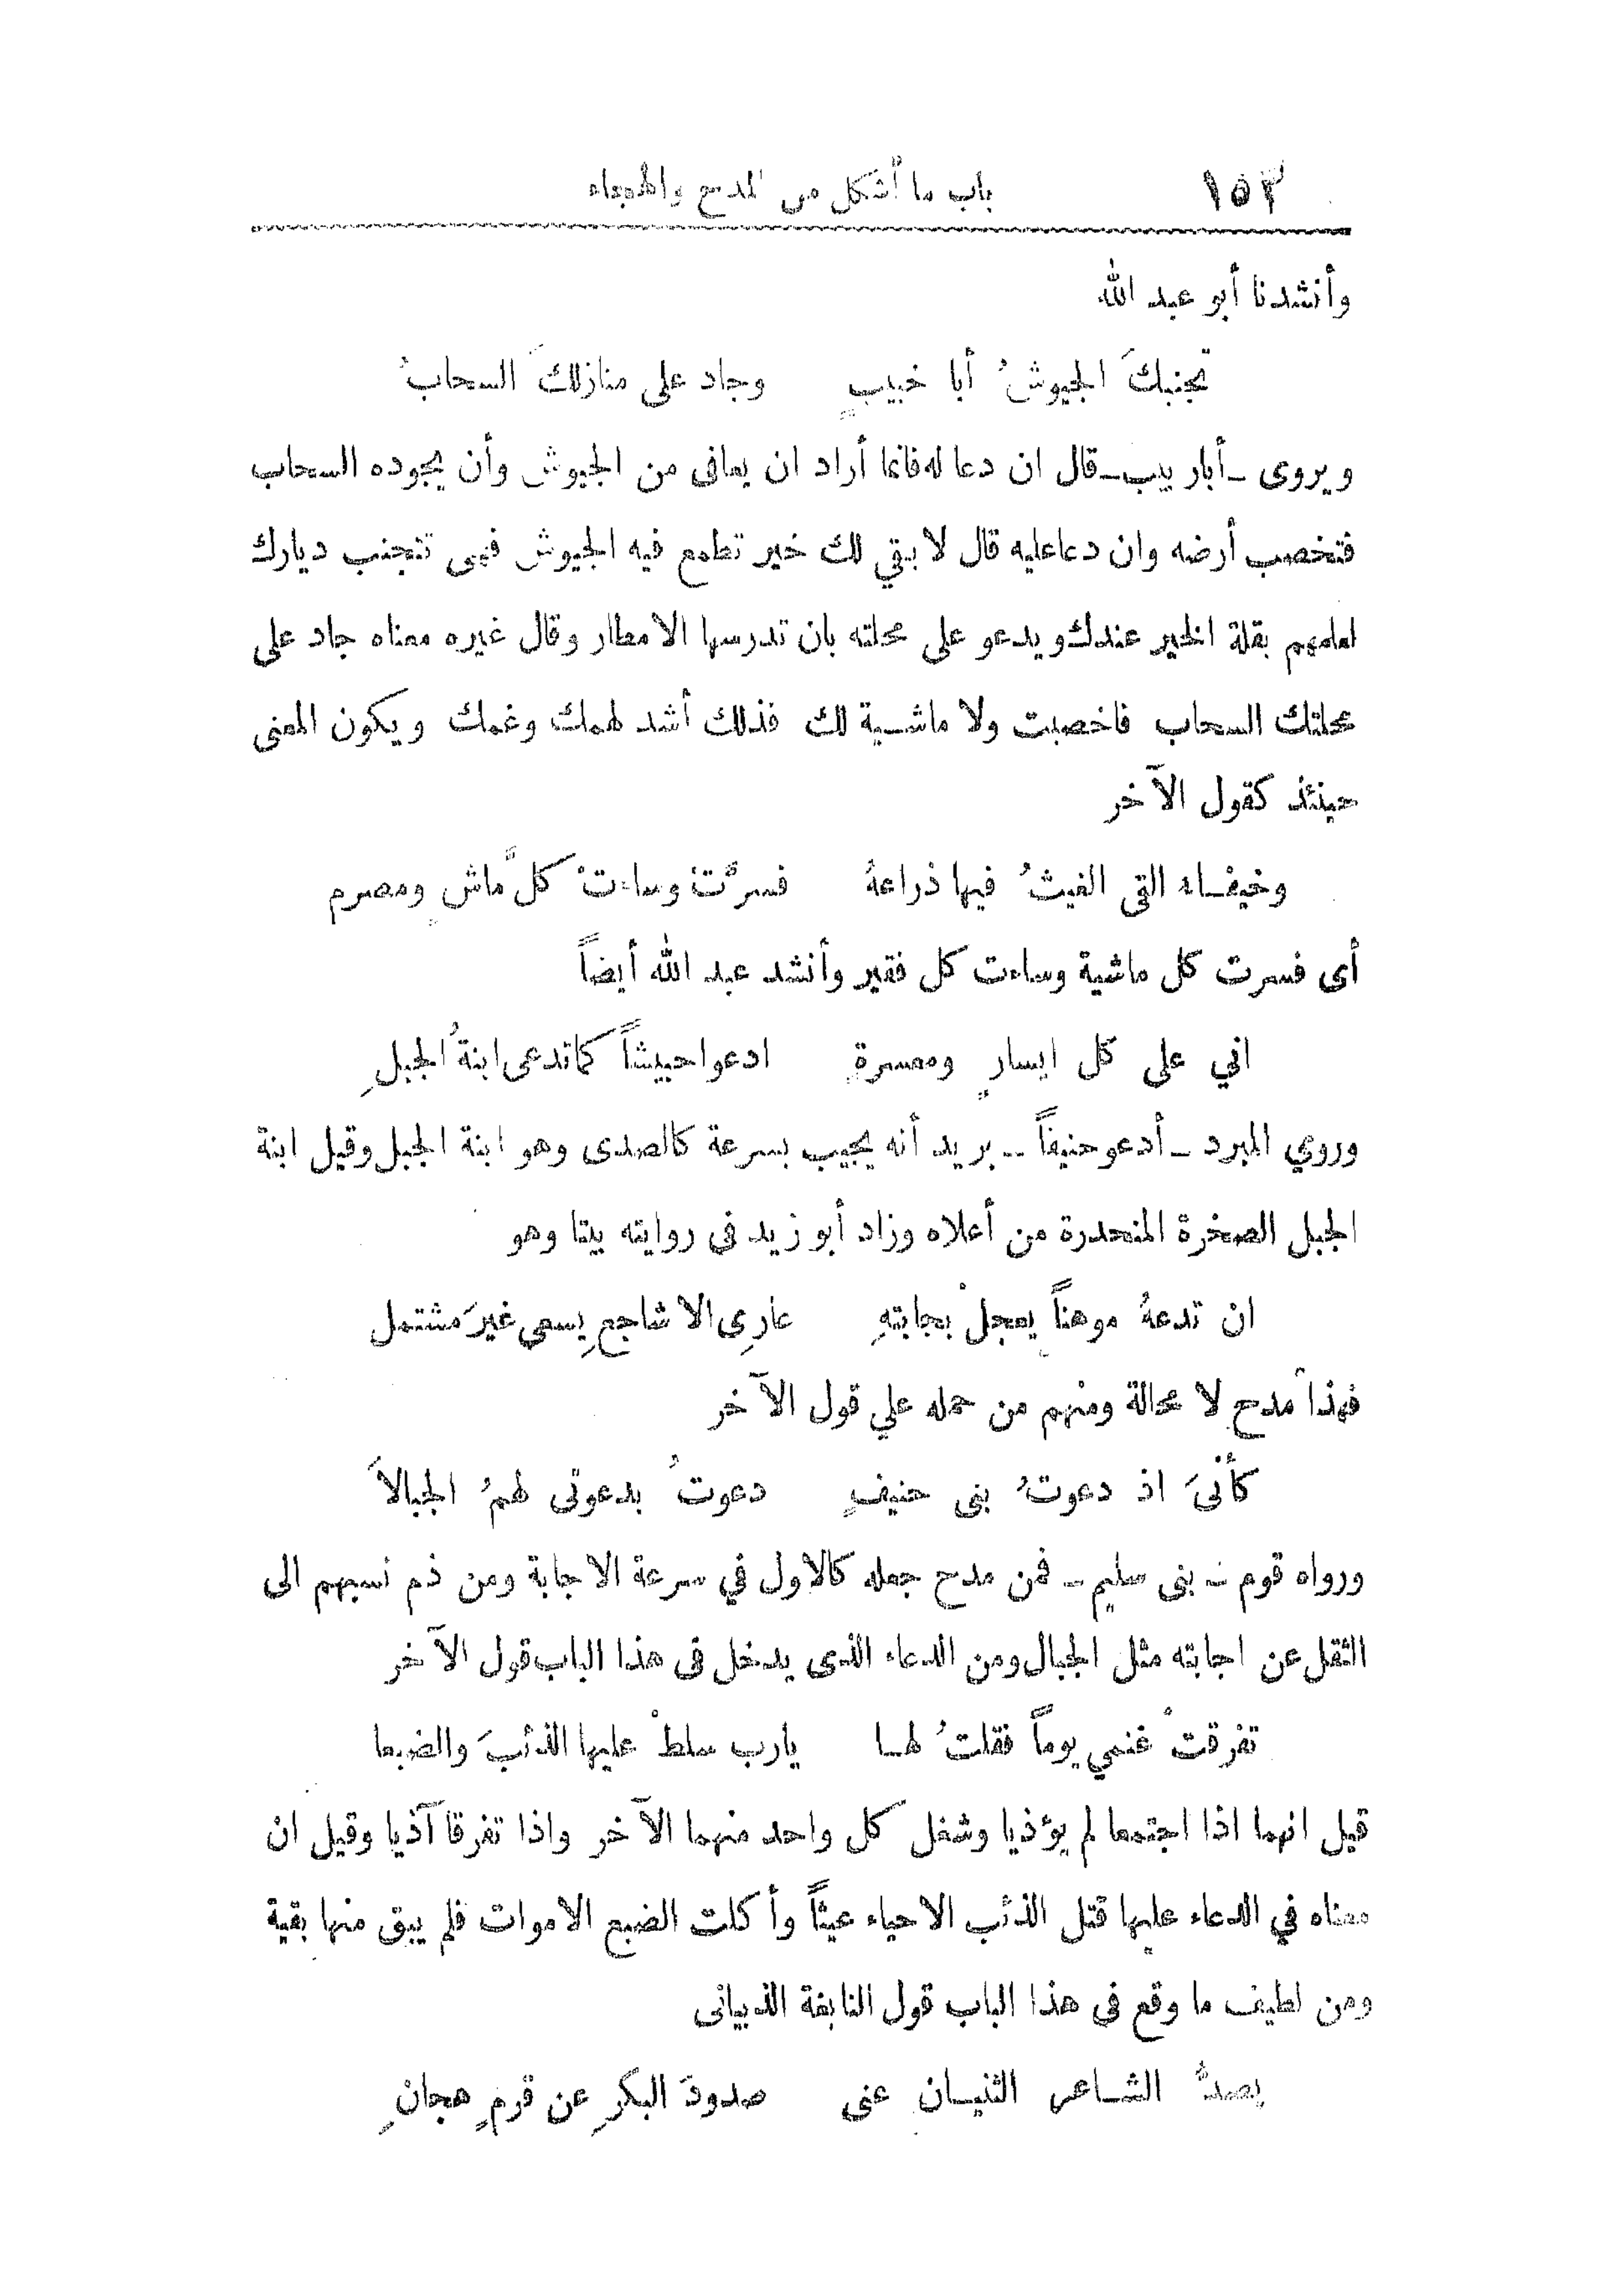 ١٥٢ باب ما أشكل من المدح والهجاء
وأنشدنا أبو عبد الله
تجنبكَ الجيوشُ أبا خبيبٍ وجاد على منازلكَ السحابُ
ويروى ـ أبار بيب ـ قال ان دعا له فانما أراد ان يعافى من الجيوش وأن يجوده السحاب
فتخصب أرضه وان دعا عليه قال لا بقي لك خير تطمع فيه الجيوش فهى تتجنب ديارك
لعلمهم بقلة الخير عندك ويدعو على محلته بان تدرسها الامطار وقال غيره معناه جاد على
محلتك السحاب فاخصبت ولا ماشية لك فذلك أشد لهمك وغمك ويكون المعنى
حينئذ كقول الآخر
وخيفاء القى الغيثُ فيها ذراعهُ فسرَّتْ وساءتْ كلَّ ماشٍ ومصرم
أى فسرت كل ماشية وساءت كل فقير وأنشد عبد الله أيضاً
اني على كل ايسارٍ ومعسرةٍ ادعوا حبيشاً كما تدعى ابنةُ الجبلِ
وروي المبرد ـ أدعو حنيفاً ـ يريد أنه يجيب بسرعة كالصدى وهو ابنة الجبل وقيل ابنة
الجبل الصخرة المنحدرة من أعلاه وزاد أبو زيد فى روايته بيتا وهو
ان تدعهُ موهناً يعجلْ بجابتهِ عارِى الاشاجعِ يسعى غيرَ مشتمل
فهذا مدح لا محالة ومنهم من حمله علي قول الآخر
كأنىَ اذ دعوتُ بنى حنيفٍ دعوتُ بدعوتى لهمُ الجبالاَ
ورواه قوم ـ بنى سليم ـ فمن مدح جعله كالاول في سرعة الاجابة ومن ذم نسبهم الى
الثقل عن اجابته مثل الجبال ومن الدعاء الذى يدخل فى هذا الباب قول الآخر
تفرقتْ غنمي يوماً فقلتُ لها يارب سلطْ عليها الذئبَ والضبعا
قيل انهما اذا اجتمعا لم يؤذيا وشغل كل واحد منهما الآخر واذا تفرقا آذيا وقيل ان
معناه في الدعاء عليها قتل الذئب الاحياء عيثاً وأكلت الضبع الاموات فلم يبق منها بقية
ومن لطيف ما وقع فى هذا الباب قول النابغة الذبيانى
يصدُّ الشاعر الثنيان عنى صدودَ البكرِ عن قرمٍ هجانِ